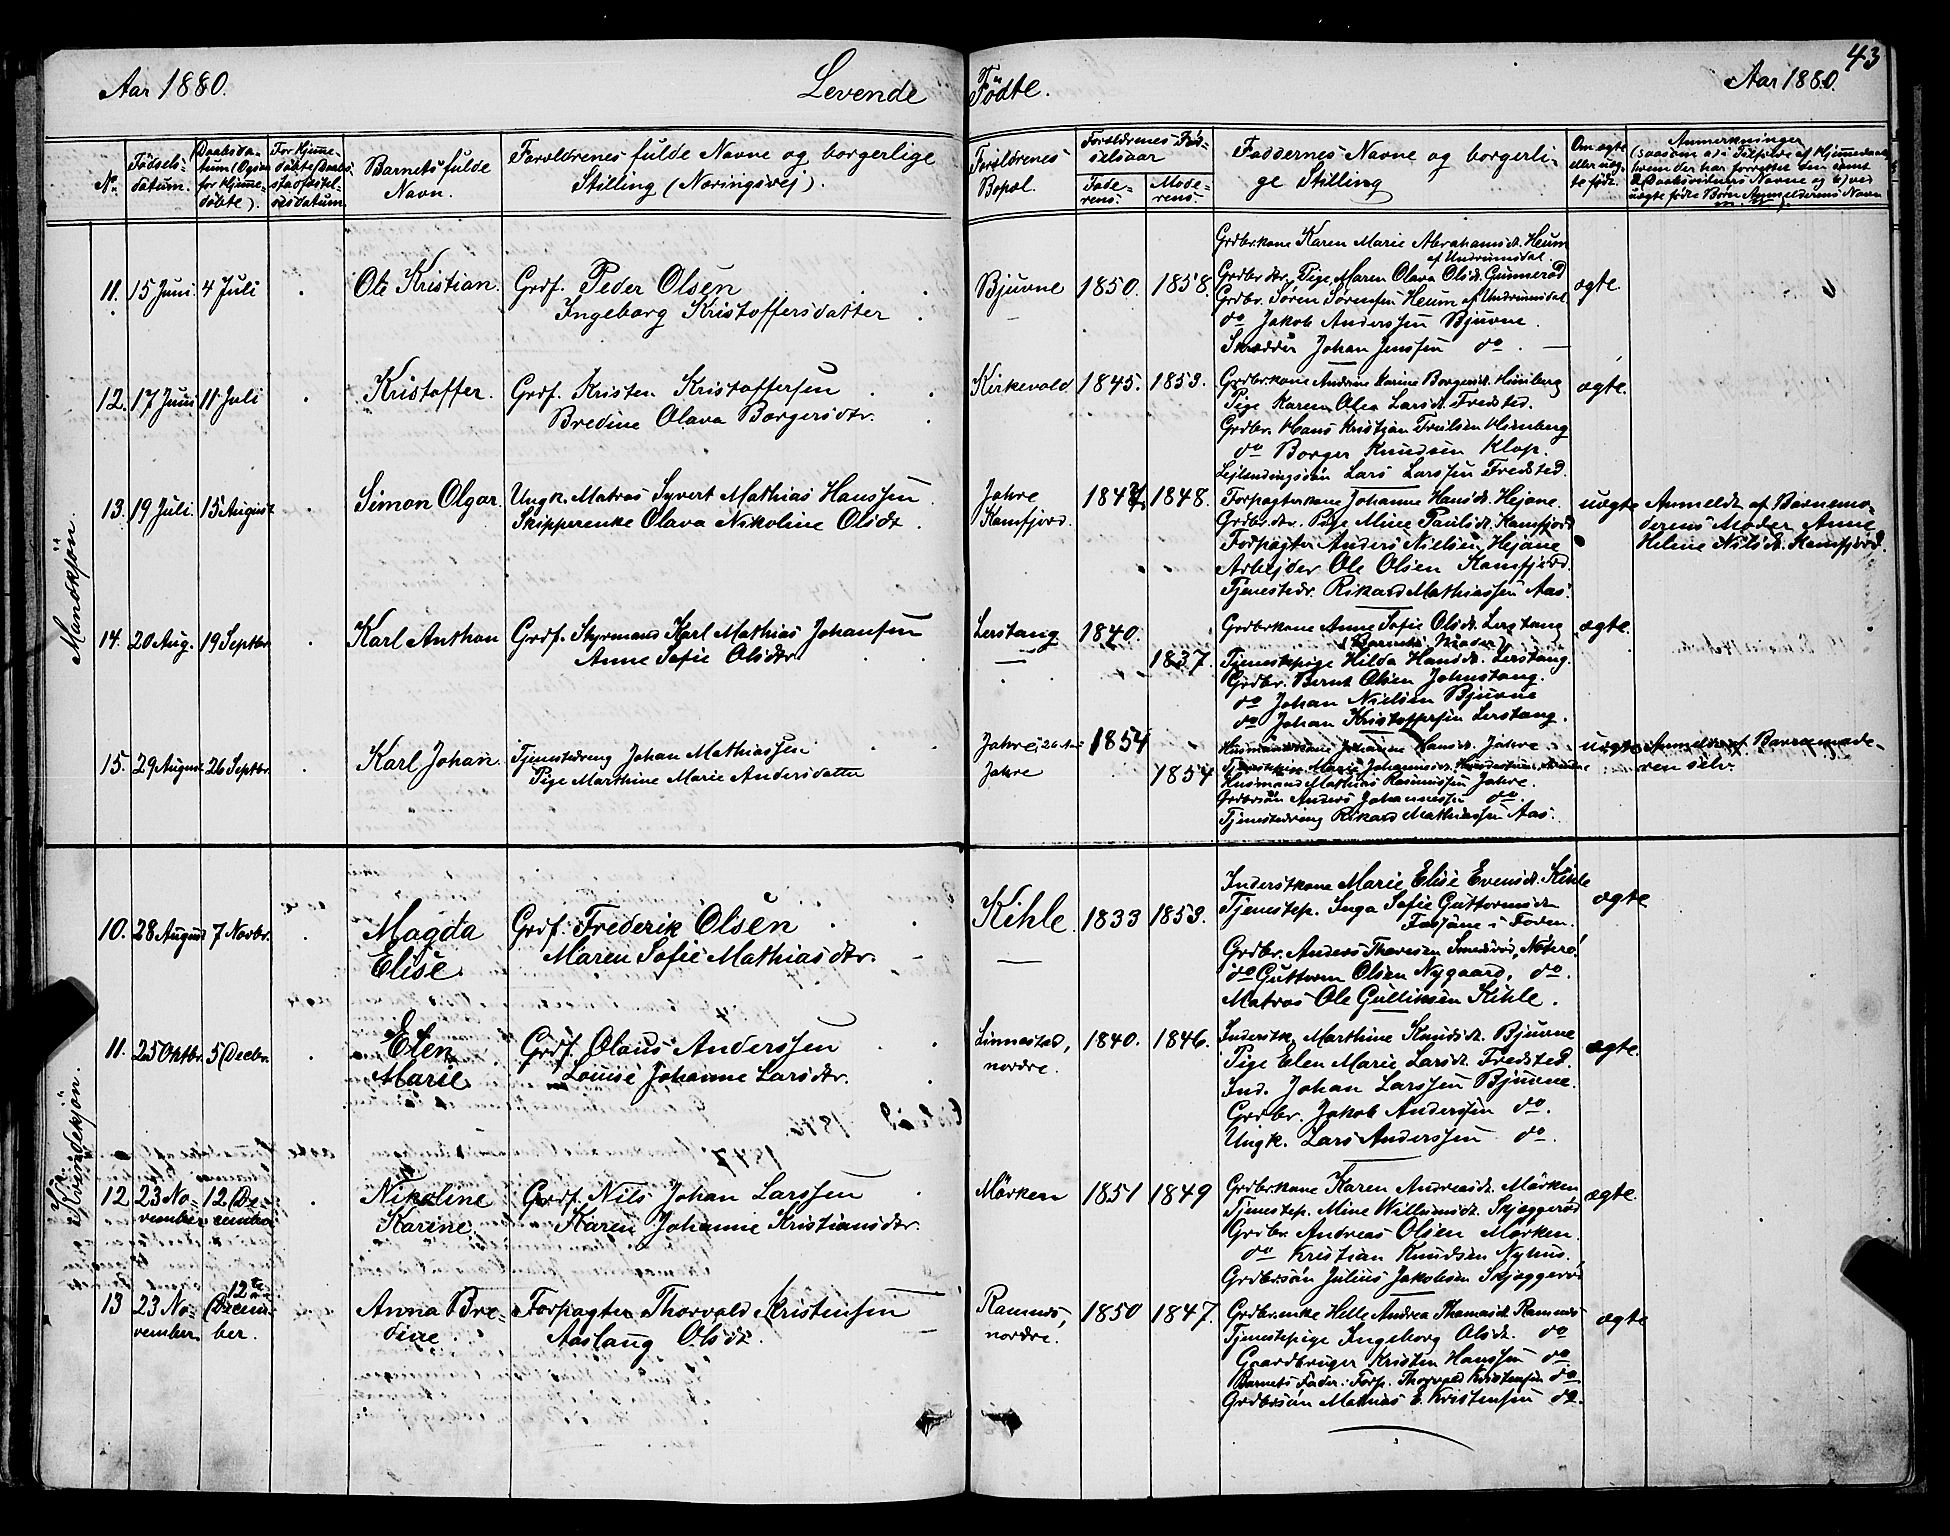 43
Aar 1880.
Levende Födte.
Aar 1880.
No.
Födsels-
datum.
Daabsda-
tum (Ogsaa
for hjemme-
döbte).
For hjemme-
döbte Daabs-
stadfæstel-
sesdatum.
Barnets fulde
Navn.
Forældrenes fulde Navne og borgerlige
Stilling (Næringsvej).
Forældrenes
Bopæl.
Forældrenes Föd-
selsaar
Fade-
rens.
Mode-
rens.
Faddernes Navne og borgerli-
ge Stilling
Om ægte
eller uæg-
te födt.
Anmerkninger
Mandkjön.
11. 15 Juni 4 Juli
Ole Kristian.
Grdf. Peder Olsen
Ingeborg Kristoffersdatter
Bjuvne 1850. 1858.
Grdbr.kone Karen Marie Abrahamsdt. Heum
af Undrumsdal.
Grdbr.dtr. Pige Maren Olava Olsdt. Gunnerød
Grdbr. Sören Sörensen Heum af Undrumsdal
do Jakob Anderssen Bjuvne.
Skrædder Johan Jenssen do.
ægte.
12. 17 Juni 11 Juli
Kristoffer.
Grdf. Kristen Kristoffersen
Bredine Olava Borgersdtr.
Kirkevold 1845. 1853.
Grdbr.kone Andrine Karine Borgersdt. Himberg
Pige Karen Olea Larsdt. Fredsted.
Grdbr. Hans Kristian Trulsen Himberg
do Borger Knudsen Klop.
Lejlendingssön Lars Larssen Fredsted.
ægte.
13. 19 Juli 15 August
Simon Olgar.
Ungk. Matros Syvert Mathias Hanssen
Skipperenke Olava Nikoline Olsdt.
Jahre
Kamfjord.
1847 1848.
Forpagterkone Johanne Hansdt. Hejane.
Grdbrdtr. Pige Mine Paulsdt. Kamfjord
Forpagter Anders Nielsen Hejane
Arbejder Ole Olsen Kamfjord.
Tjenestedr. Rikard Mathiassen Aas.
uægte
Anmeldt af Barnemo-
derens Moder Anne
Helene Nilsdt. Kamfjord.
14. 20 Aug. 19 Septbr.
Karl Anthon
Grdf. Styrmand Karl Mathias Johansen
Anne Sofie Olsdtr.
Lerstang 1840.
1837.
Grdbrkone Anne Sofie Olsdt. Lerstang
(Barnets Moder)
Tjenestepige Hilda Hansdt. Lerstang.
Grdbr. Bernt Olsen Johnstang.
do Johan Nielsen Bjuvne
do Johan Kristoffersen Lerstang.
ægte.
15. 29 August 26 Septbr.
Karl Johan.
Tjenestedreng Johan Mathiassen
Pige Marthine Marie Andersdatter
Jahre
Jahre
1854
1854
Husmandskone Johanne Hansdt. Jahre
Husmand Mathias Rasmussen Jahre.
Grdbrsön Anders Johannessen do.
Tjenestedreng Rikard Mathiassen Aas.
uægte
Anmeldt af Barnemode-
ren selv.
Kvindekjön.
10. 28 August 7 Novbr.
Magda
Elise
Grdf. Frederik Olsen
Maren Sofie Mathiasdtr.
Kihle. 1833 1853.
Inderstkone Marie Elise Evensdt. Kihle
Tjenestep. Inga Sofie Guttormsdt.
i Foden.
Grdbr. Anders Thoresen Smidsrød, Nöterö
do Guttorm Olsen Nygaard, do.
Matros Ole Gulliksen Kihle.
ægte
11. 25 Oktbr. 5 Decbr.
Elen
Marie
Grdf. Olaus Anderssen
Louise Johanne Larsdtr.
Linnestad,
nordre.
1840. 1846.
Inderstk. Marthine Knudsdt. Bjuvne
Pige Elen Marie Larsdt. Fredsted.
Ind. Johan Larssen Bjuvne.
Grdbr. Jakob Anderssen do.
Ungk. Lars Anderssen do.
ægte.
12 23 No-
vember
12 De-
cember
Nikoline
Karine.
Grdf. Nils Johan Larssen
Karen Johanne Kristiansdtr.
Mörken 1851 1849
Grdbr.kone Karen Andreasdt. Mörken
Tjenestep. Mine Willumsdt. Skjæggerød
Grdbr. Andreas Olsen Mörken.
do Kristian Knudsen Nyhus.
Grdbrsön Julius Jakobsen Skjæggerød
ægte.
13 23 No-
vember
12te
Decem-
ber.
Anna Bre-
dine.
Forpagter Thorvald Kristensen
Aaslaug Olsdt.
Ramnes,
nordre.
1850 1847.
Grdbr.enke Helle Andrea Thomasdt. Ramnes
Tjenestepige Ingeborg Olsdt. do
Gaardbruger Kristen Hanssen do.
Barnets Fader: Forp. Thorvald Kristensen do
Grdbrsön Mathias E. Kristensen do.
ægte